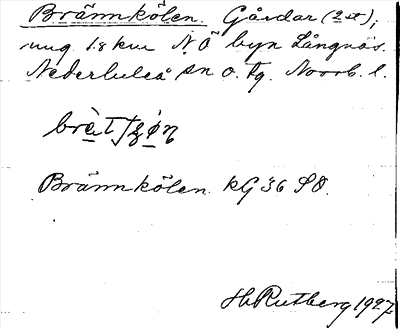 Brännkölen. Gårdar (2 st),
ung. 1.8 km N.Ö byn Långnäs.
Nederluleå sn o. tg. Norrb. l.
Brännkölen. kG 36 SO.
H Rutberg 1927.